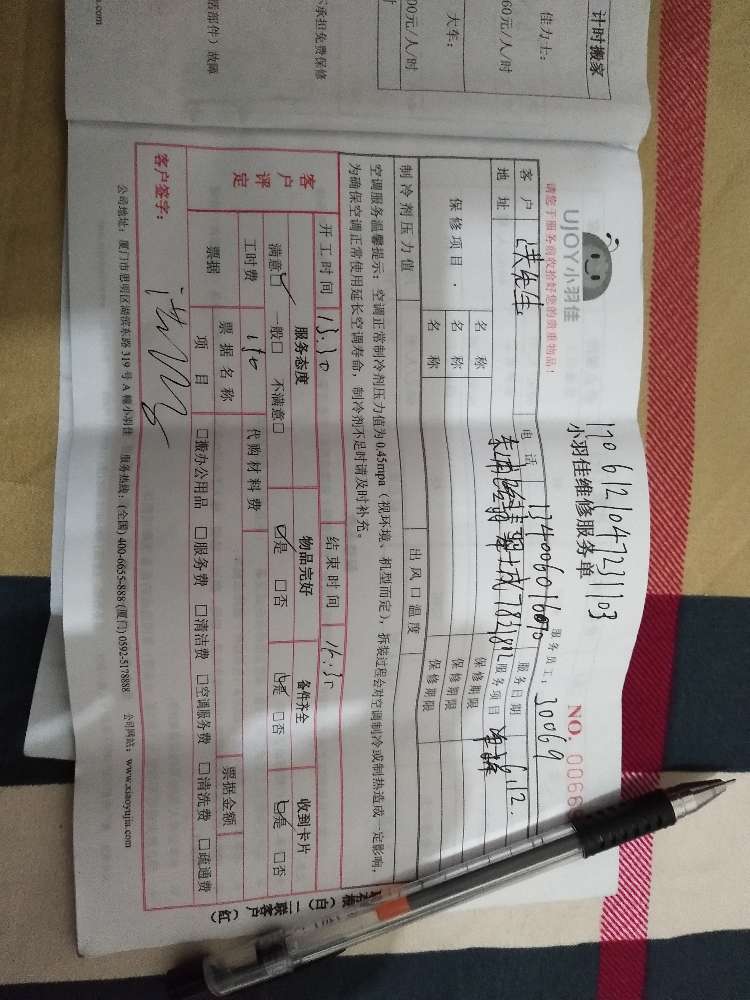 计时搬家
佳力士:
60元/人/时
大车:
00元/人/时
承担免费保修
括部件）故障
1706121047231103
UJOY小羽佳
小羽佳维修服务单
NO. 0066
请您于服务前收拾好您的贵重物品!
服务员工: 30069
客户 洪先生 电话 服务日期 6.12.
地址 服务项目
保修项目 名称 保修期限
名称 保修期限
名称 保修期限
制冷剂压力值 出风口温度
空调服务温馨提示: 空调正常制冷剂压力值为0.45mpa（视环境、机型而定），拆装过程会对空调制冷或制热造成一定影响,
为确保空调正常使用延长空调寿命, 制冷剂不足时请及时补充。
开工时间 13:30 结束时间 15:30
客户评定 服务态度 物品完好 备件齐全 收到卡片
满意☑ 一般□ 不满意□ ☑是 □否 ☑是 □否 ☑是 □否
工时费 代购材料费
票据 票据名称 票据金额
项目 □搬办公用品 □服务费 □清洁费 □空调服务费 □清洗费 □疏通费
客户签字:
(白) 二联客户 (红)
公司地址: 厦门市思明区湖滨东路319号A幢小羽佳 服务热线: (全国) 400-6655-888 (厦门) 0592-5178888 公司网站: www.xiaoyujia.com